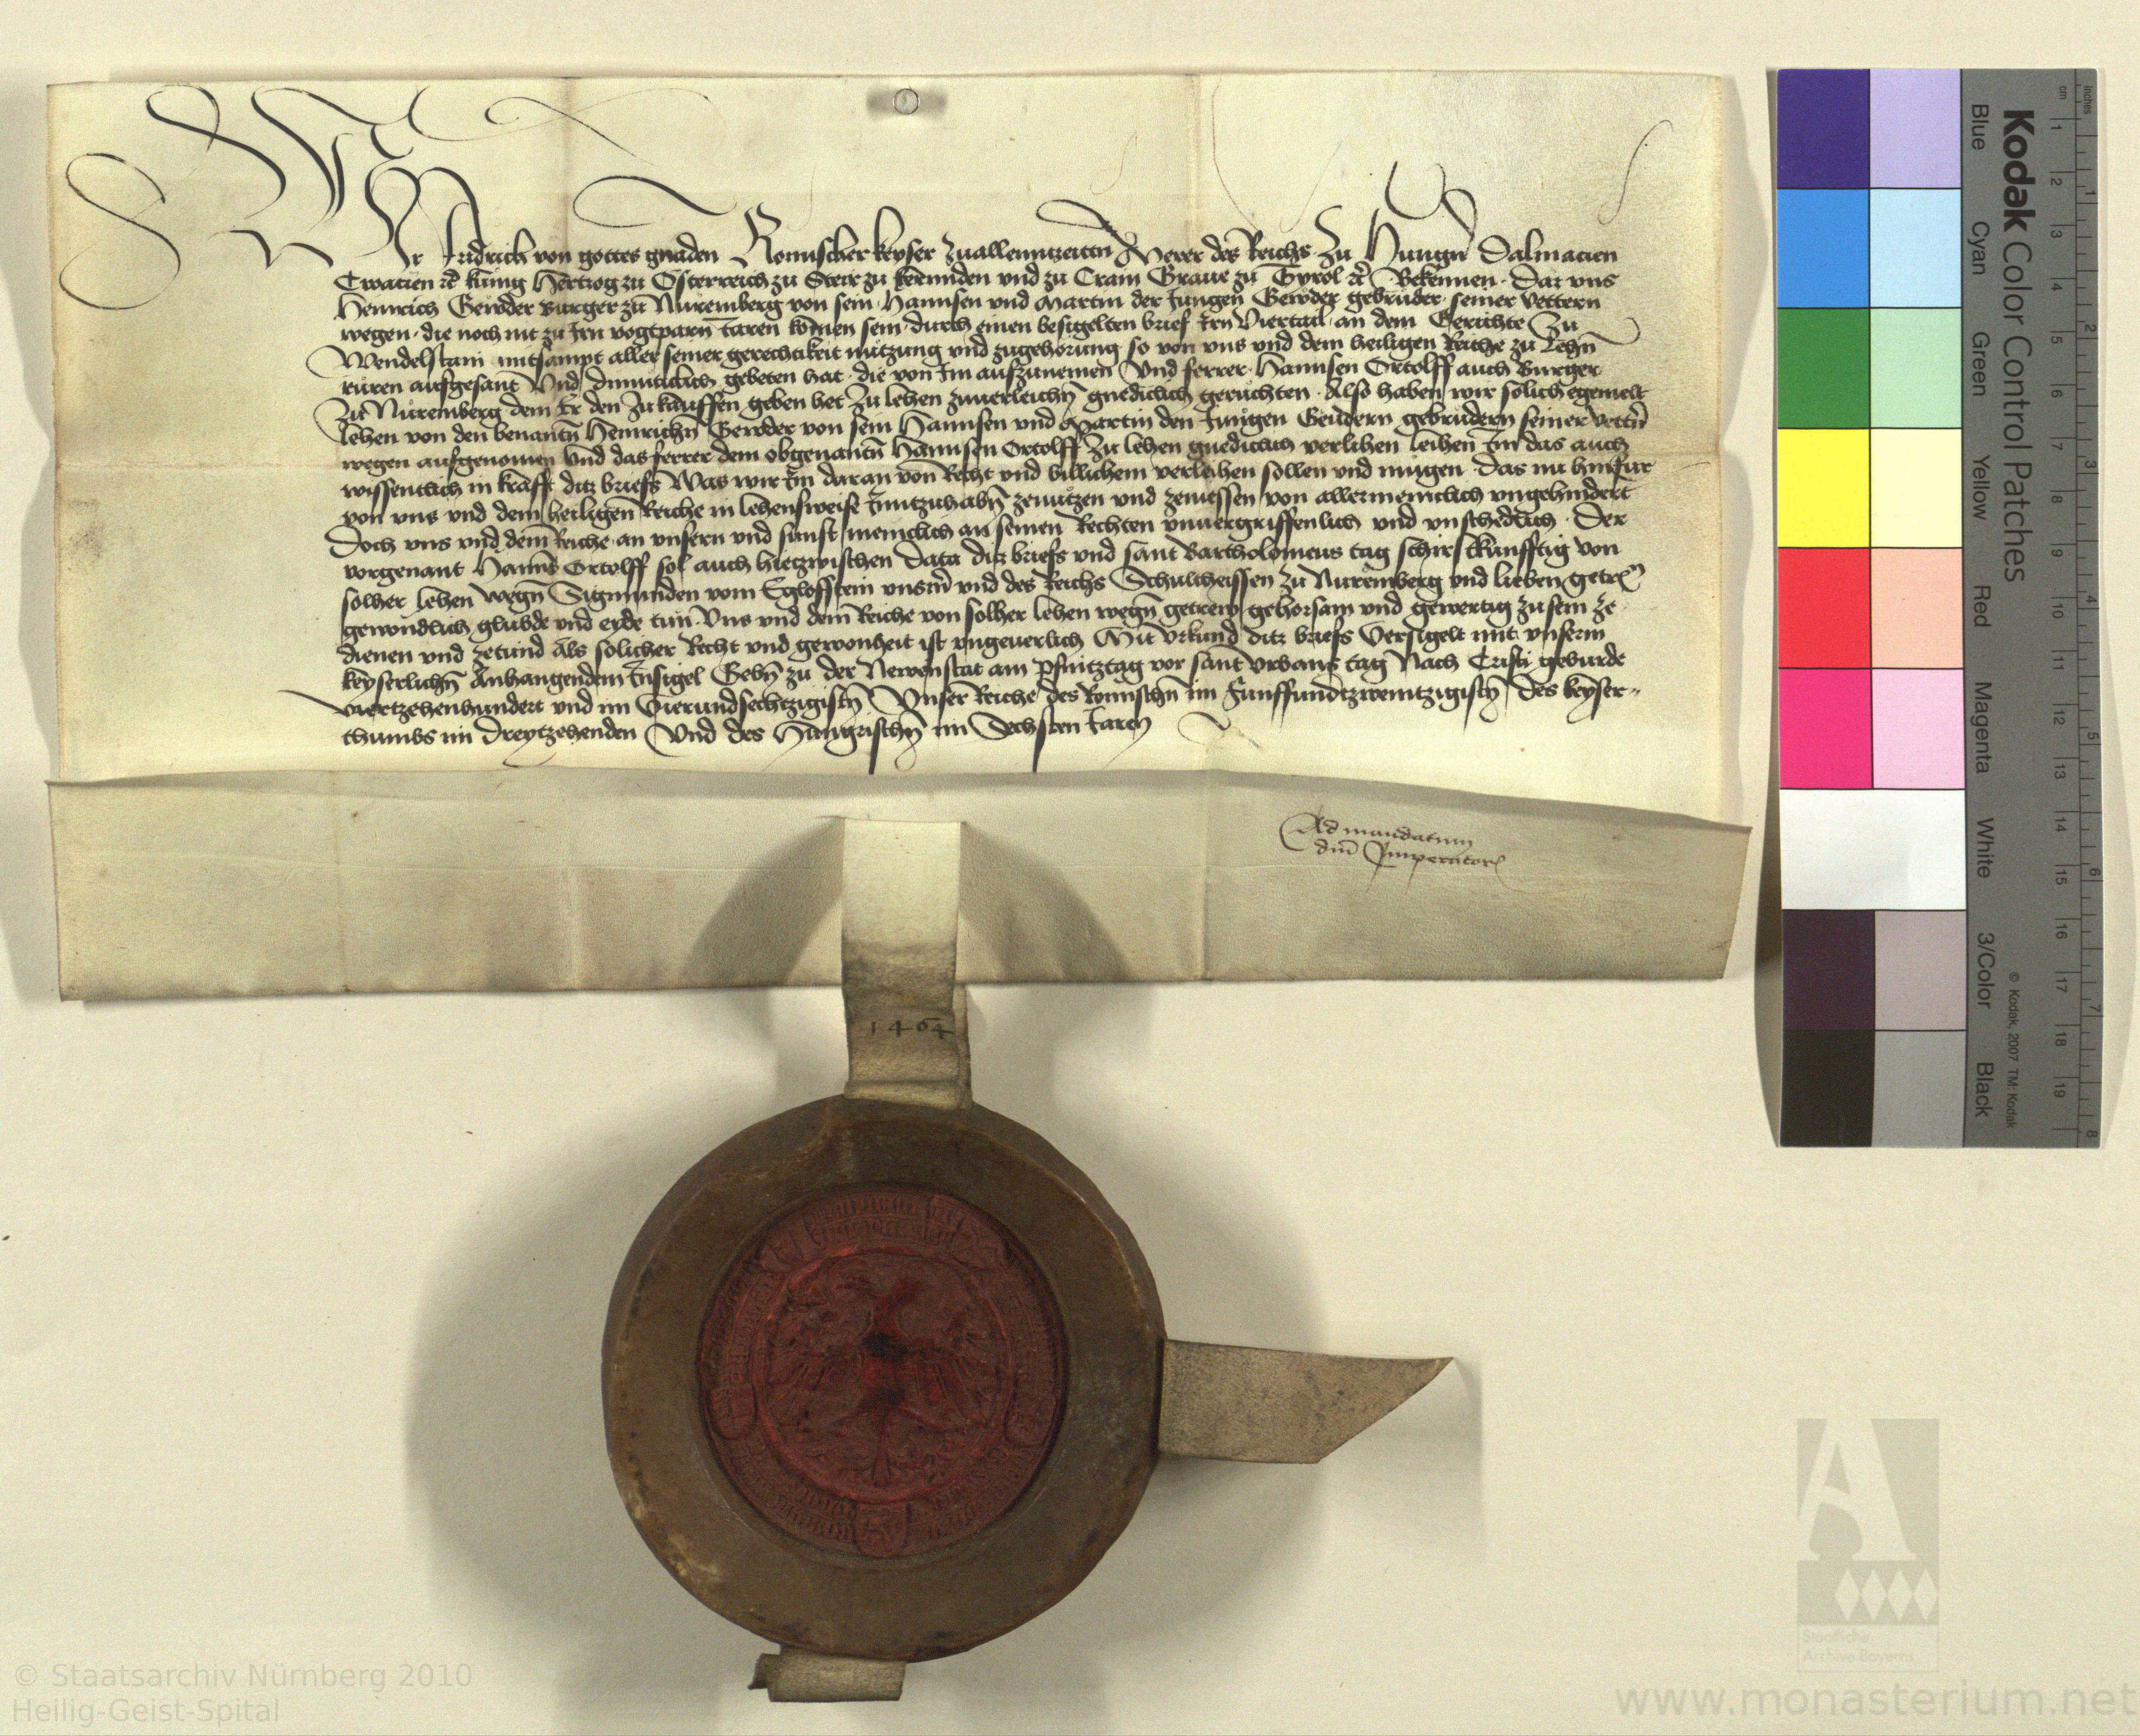 Wir Fridrich von gottes gnaden Romischer keyser zuallenntzeiten Merer des Reichs zu Hungern Dalmacien
Croacien rc kunig Hertzog zu Osterreich zu Steir zu kernnden und zu Crain Graue zu Tyrol rc Bekennen. Daz uns
Heinrich Gewder Burger zu Nuremberg von sein Hannsen und Martin der Jungen Gewder gebruder seiner Vettern
wegen. die noch nit zu Irn vogtparn Jaren komen sein. durch einen besigelten brief Irn Viertail an dem Gerichte zu
Wendelstain mitsampt aller seiner gerechtikeit nutzung und zugehorung so von uns und dem heiligen Reiche zu Lehn
ruren aufgesant Und diemuticlich gebeten hat. die von Im aufzunemen Und ferrer Hannsen Ortolff auch Burger
zu Nuremberg dem Er den zukauffen geben het zu lehen zuuerleichn gnediclich geruchten. Also haben wir solich egemelt
lehen von den benantn Heinrichn Gewder von sein Hannsen und Martin den Jungen Geudern gebrudern seiner vettern
wegen aufgenomen Und das ferrer dem obgenantn Hannsen Ortolff zu lehen gnediclich verlihen leihen Im das auch
wissentlich in krafft ditz briefs Was wir Im daran von Recht und billichem verleihen sollen und mugen. Das nu hinfur
von uns und dem heiligen Reiche in lehensweise Innzuhabn zenutzen und zeniessen von allermeniclich ungehindert
Doch uns und dem Reiche an unsern und sunst meniclich an seinen Rechten unuergriffenlich und unschedlich. Der
vorgenant Hanns Ortolff sol auch hietzwischen Data ditz briefs und sant Bartholomeus tag schirstkunfftig von
solher lehen wegn Sigmunden vom Eglofstein unserm und des Reichs Schultheissen zu Nuremberg und lieben getren
gewondlich glubde und eyde tun. Uns und dem Reiche von solher lehen wegn getrew gehorsam und gewertig zu sein ze
dienen und zetund Als solicher Recht und gewonheit ist ungeuerlich Mit Urkund ditz briefs Versigelt mit unserm
keyserlichn Anhangendem Insigel Gebn zu der Newenstat am Pfintztag vor sant Urbans tag Nach Cristi geburde
viertzehenhundert und im Vierundsechtzigistn Unser Reiche des Romischn im Funffundtzweintzigistn Des keyser-
thumbs im Dreytzehenden Und des Hungrischn im Sechsten Jaren
Ad mandatum
dni Imperatoris
1464
Kodak Color Control Patches
Blue Cyan Green Yellow Red Magenta White 3/Color Black
© Kodak, 2007 TM: Kodak
inches 1 2 3 4 5 6 7 8
cm 1 2 3 4 5 6 7 8 9 10 11 12 13 14 15 16 17 18 19
Staatliche
Archive Bayerns
© Staatsarchiv Nürnberg 2010
Heilig-Geist-Spital
www.monasterium.net